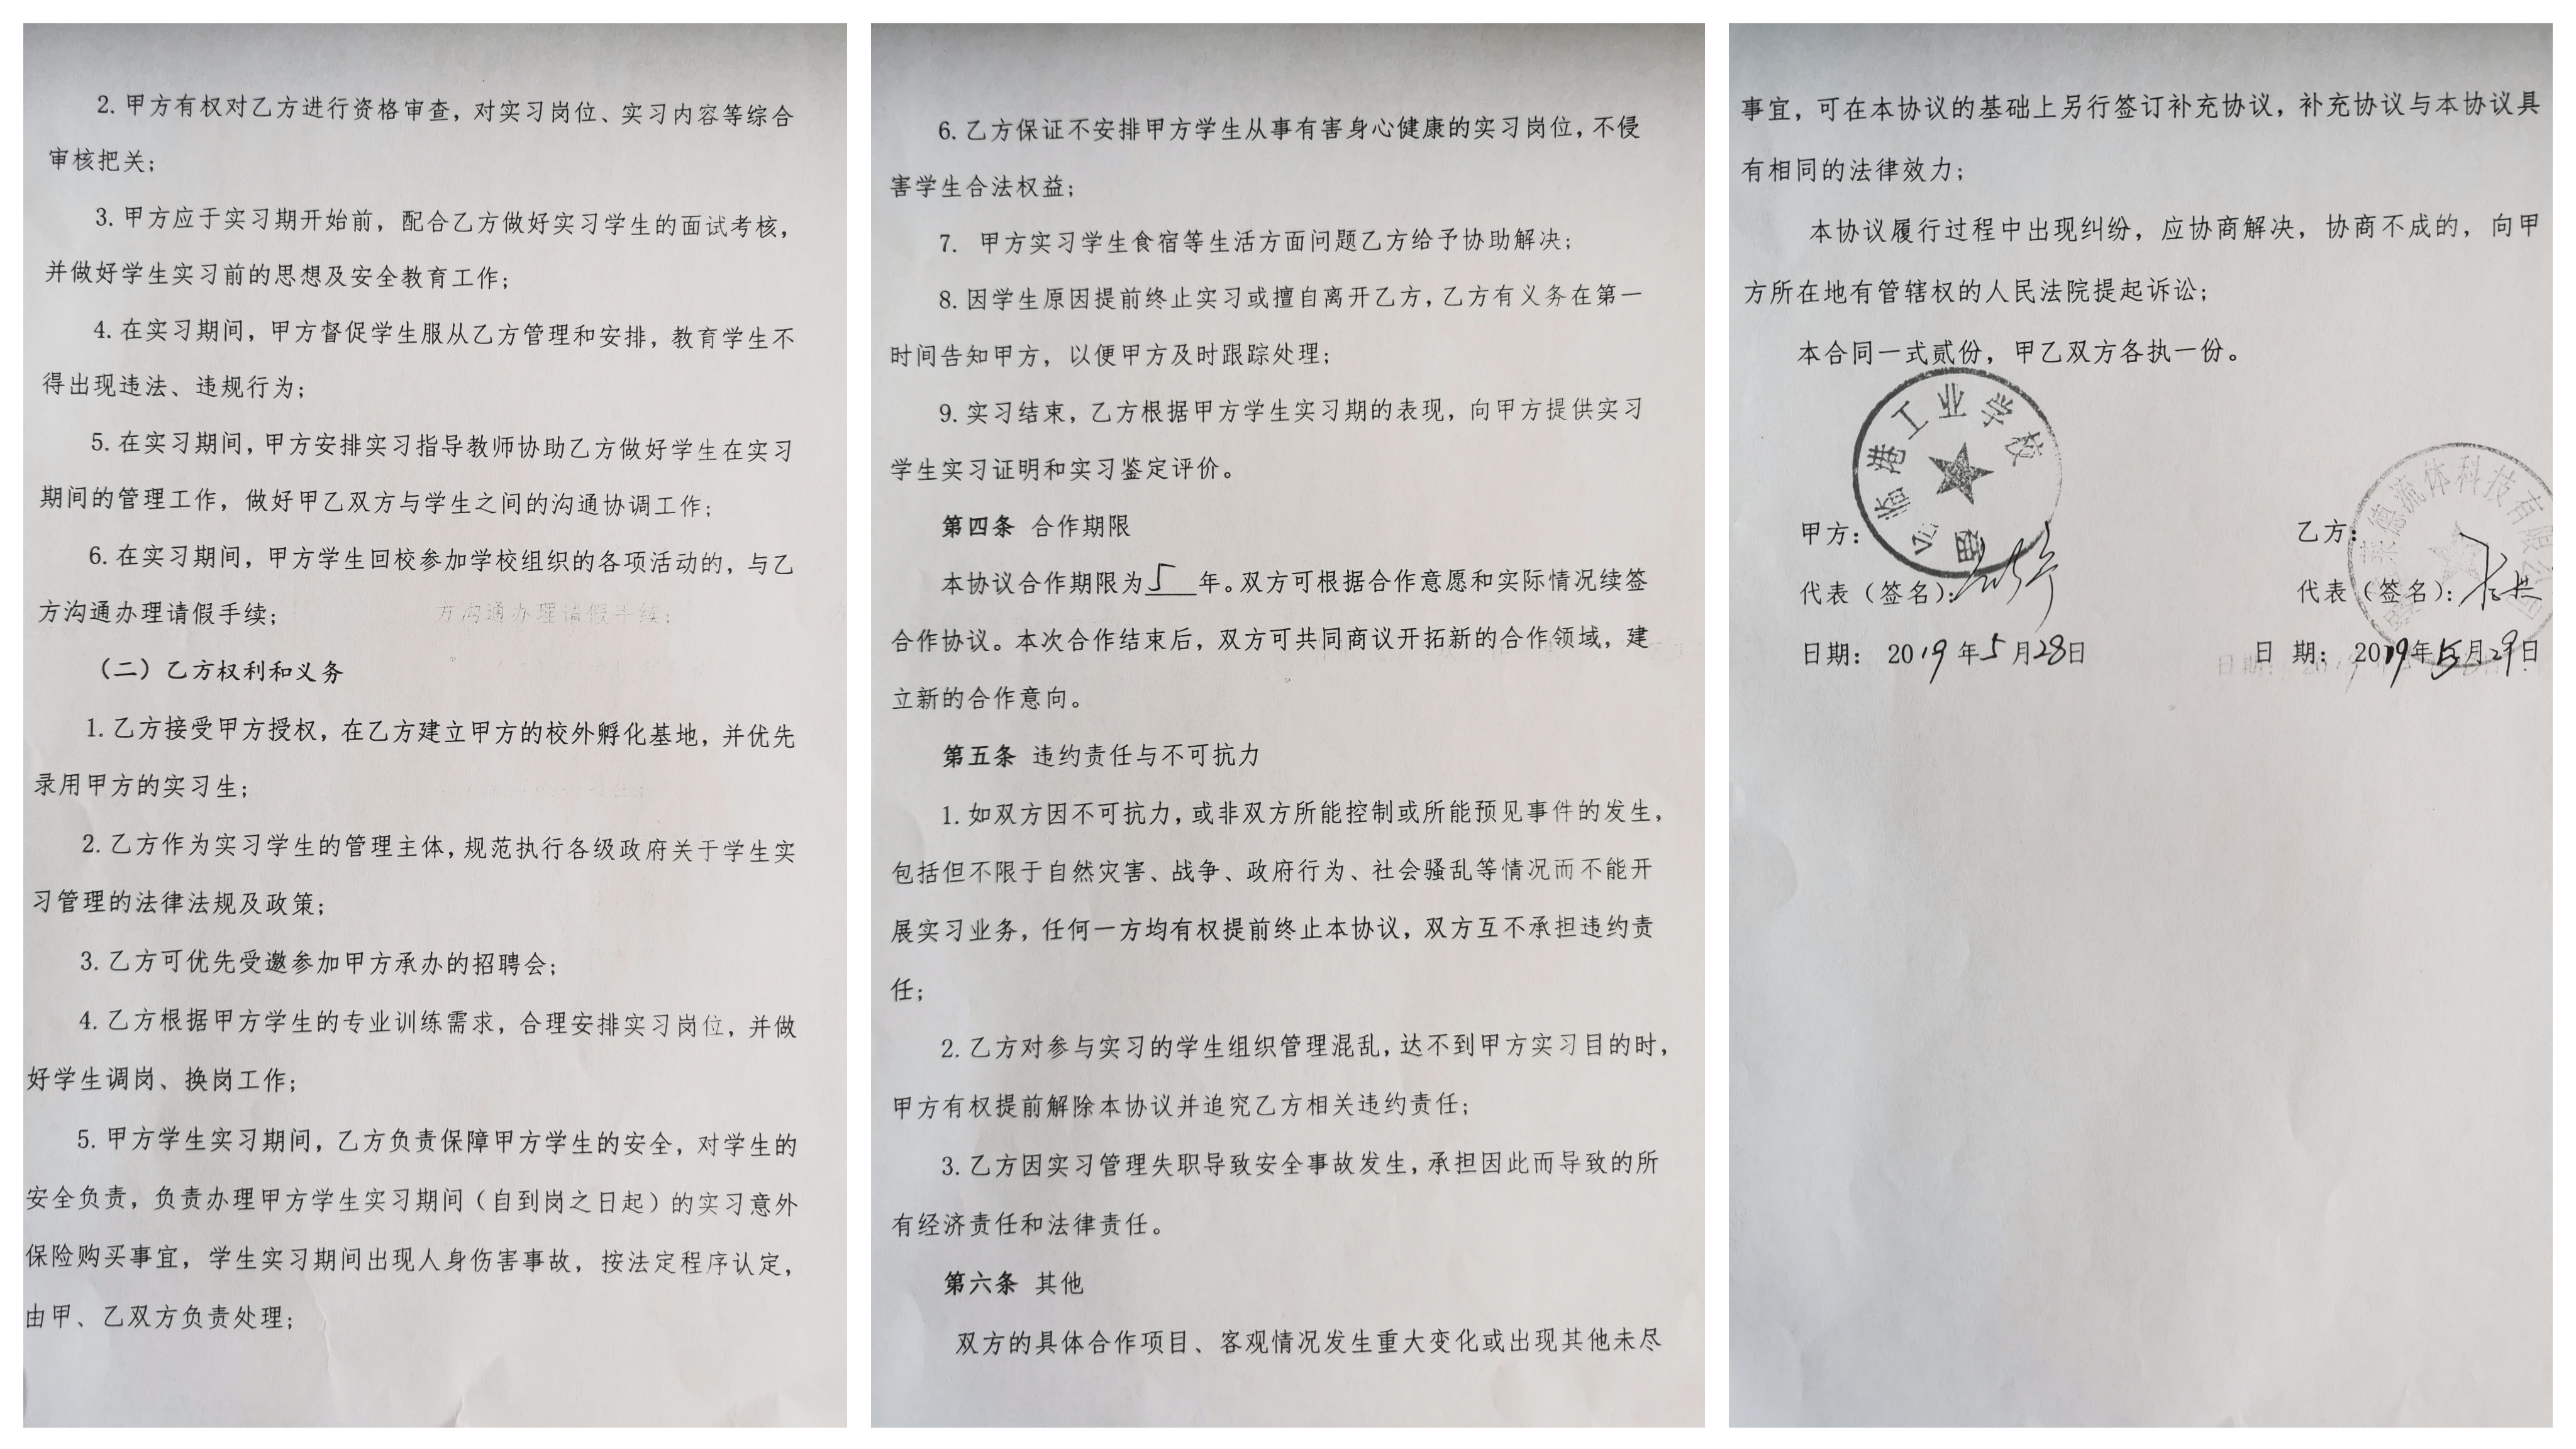 2. 甲方有权对乙方进行资格审查，对实习岗位、实习内容等综合
审核把关；
3. 甲方应于实习期开始前，配合乙方做好实习学生的面试考核，
并做好学生实习前的思想及安全教育工作；
4. 在实习期间，甲方督促学生服从乙方管理和安排，教育学生不
得出现违法、违规行为；
5. 在实习期间，甲方安排实习指导教师协助乙方做好学生在实习
期间的管理工作，做好甲乙双方与学生之间的沟通协调工作；
6. 在实习期间，甲方学生回校参加学校组织的各项活动的，与乙
方沟通办理请假手续；
方沟通办理请假手续；
（二）乙方权利和义务
1. 乙方接受甲方授权，在乙方建立甲方的校外孵化基地，并优先
录用甲方的实习生；
2. 乙方作为实习学生的管理主体，规范执行各级政府关于学生实
习管理的法律法规及政策；
3. 乙方可优先受邀参加甲方承办的招聘会；
4. 乙方根据甲方学生的专业训练需求，合理安排实习岗位，并做
好学生调岗、换岗工作；
5. 甲方学生实习期间，乙方负责保障甲方学生的安全，对学生的
安全负责，负责办理甲方学生实习期间（自到岗之日起）的实习意外
保险购买事宜，学生实习期间出现人身伤害事故，按法定程序认定，
由甲、乙双方负责处理；
6. 乙方保证不安排甲方学生从事有害身心健康的实习岗位，不侵
害学生合法权益；
7. 甲方实习学生食宿等生活方面问题乙方给予协助解决；
8. 因学生原因提前终止实习或擅自离开乙方，乙方有义务在第一
时间告知甲方，以便甲方及时跟踪处理；
9. 实习结束，乙方根据甲方学生实习期的表现，向甲方提供实习
学生实习证明和实习鉴定评价。
第四条 合作期限
本协议合作期限为 5 年。双方可根据合作意愿和实际情况续签
合作协议。本次合作结束后，双方可共同商议开拓新的合作领域，建
立新的合作意向。
第五条 违约责任与不可抗力
1. 如双方因不可抗力，或非双方所能控制或所能预见事件的发生，
包括但不限于自然灾害、战争、政府行为、社会骚乱等情况而不能开
展实习业务，任何一方均有权提前终止本协议，双方互不承担违约责
任；
2. 乙方对参与实习的学生组织管理混乱，达不到甲方实习目的时，
甲方有权提前解除本协议并追究乙方相关违约责任；
3. 乙方因实习管理失职导致安全事故发生，承担因此而导致的所
有经济责任和法律责任。
第六条 其他
双方的具体合作项目、客观情况发生重大变化或出现其他未尽
事宜，可在本协议的基础上另行签订补充协议，补充协议与本协议具
有相同的法律效力；
本协议履行过程中出现纠纷，应协商解决，协商不成的，向甲
方所在地有管辖权的人民法院提起诉讼；
本合同一式贰份，甲乙双方各执一份。
临港工业学校
德流体科技有限公司
甲方：
乙方：
代表（签名）：
代表（签名）：
日期： 2019 年 5 月 28 日
日 期： 2019 年 5 月 29 日